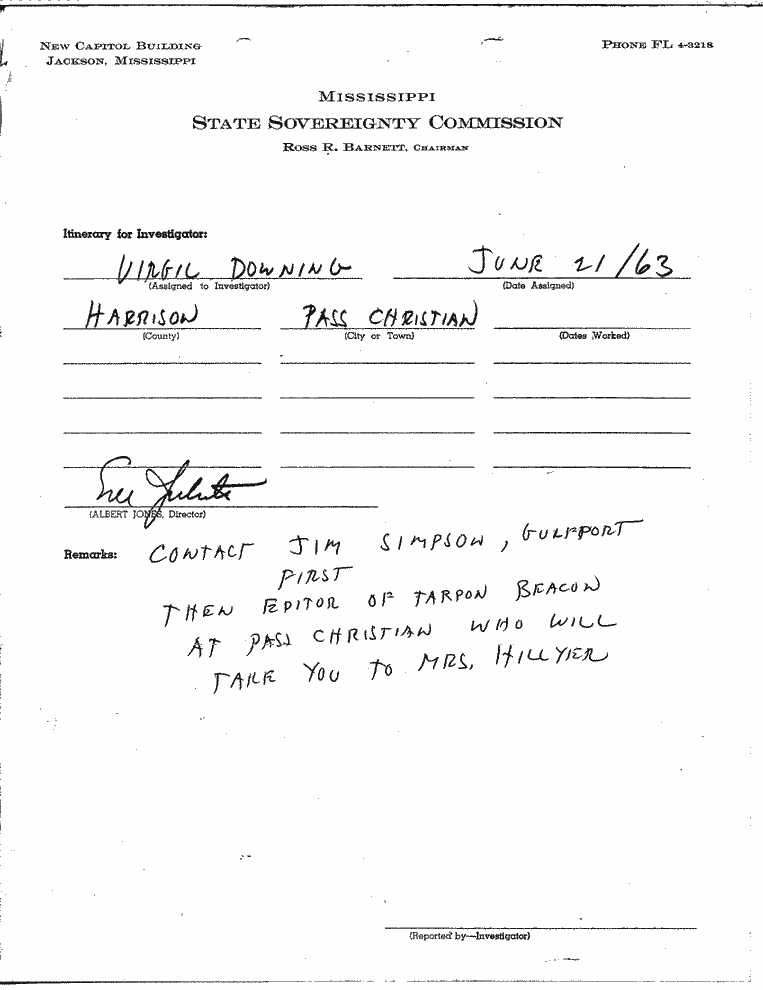 NEW CAPITOL BUILDING PHONE FL 4-3218
JACKSON, MISSISSIPPI
MISSISSIPPI
STATE SOVEREIGNTY COMMISSION
ROSS R. BARNETT, CHAIRMAN
Itinerary for Investigator:
VIRGIL DOWNING JUNE 21/63
(Assigned to Investigator) (Date Assigned)
HARRISON PASS CHRISTIAN
(County) (City or Town) (Dates Worked)
(ALBERT JONES, Director)
Remarks: CONTACT JIM SIMPSON, GULFPORT
FIRST
THEN EDITOR OF TARPON BEACON
AT PASS CHRISTIAN WHO WILL
TAKE YOU TO MRS. HILLYER
(Reported by—Investigator)